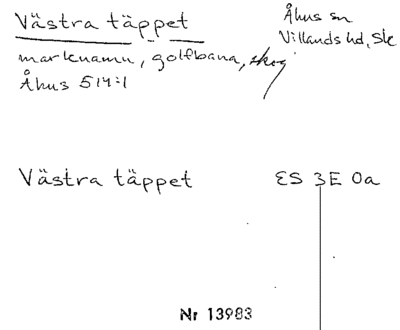 Västra täppet
Åhus sn
Villands hd, Sk
marknamn, golfbana, skog
Åhus 514:1
Västra täppet
ES 3E 0a
Nr 13983